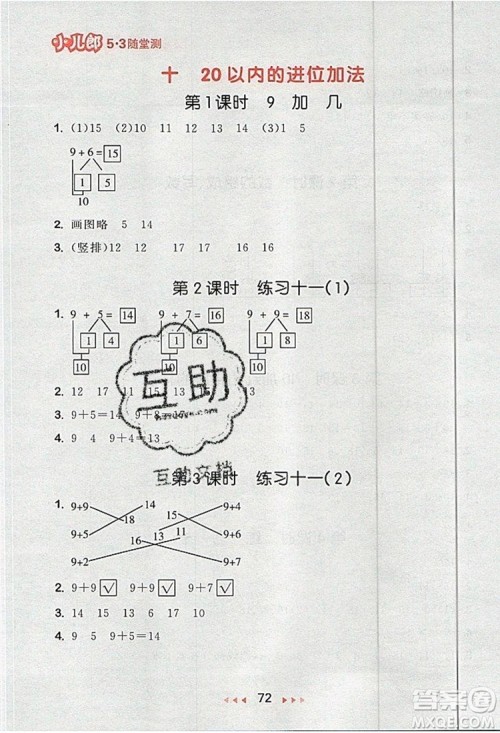 小儿郎 5·3随堂测
十 20以内的进位加法
第1课时 9 加 几
1. (1)15 (2)10 11 12 13 14 (3)1 5
9+6=15
1 5
10
2. 画图略 5 14
3. (竖排)12 12 17 17 16 16
第2课时 练习十一(1)
1. 9 + 5 = 14 9 + 7 = 16 9 + 9 = 18
1 4 1 6 1 8
10 10 10
2. 12 18 11 15 13
3. 9+5=14 9+8=17
4. 9 4 9+4=13
互助
互助文档
第3课时 练习十一(2)
1. 9+9 15 14 9+4
18
9+5 13 11 9+6
16
9+2 9+7
2. 9+9 ✓ ✓ ✓
3. 14 15 16 13 17 10
4. 9 5 9+5=14
72
答案圈
MXQE.COM